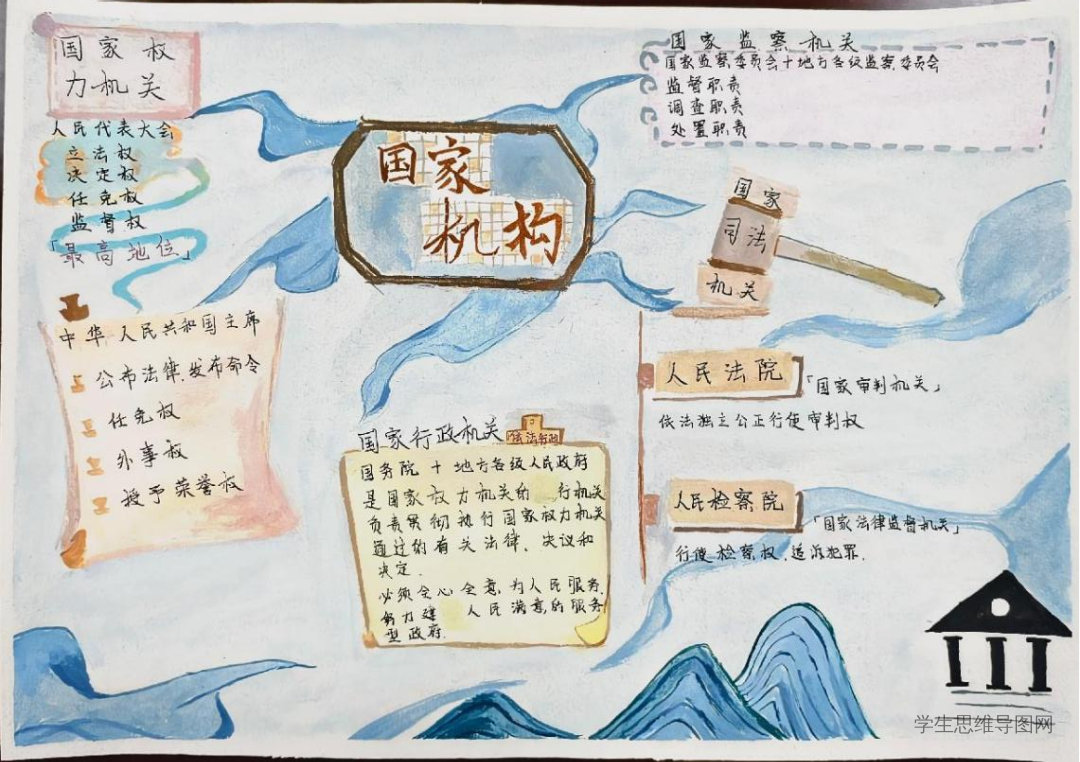 国家机构
国家权
力机关
人民代表大会
立法权
决定权
任免权
监督权
「最高地位」
中华人民共和国主席
公布法律.发布命令
任免权
外事权
授予荣誉权
国家行政机关
依法行政
国务院 + 地方各级人民政府
是国家权力机关的 行机关
负责贯彻执行国家权力机关
通过的有关法律、决议和
决定.
必须全心全意为人民服务.
努力建 人民满意的服务
型政府.
国家监察机关
国家监察委员会+地方各级监察委员会
监督职责
调查职责
处置职责
国家
司法
机关
人民法院
「国家审判机关」
依法独立公正行使审判权
人民检察院
「国家法律监督机关」
行使检察权.追诉犯罪.
学生思维导图网